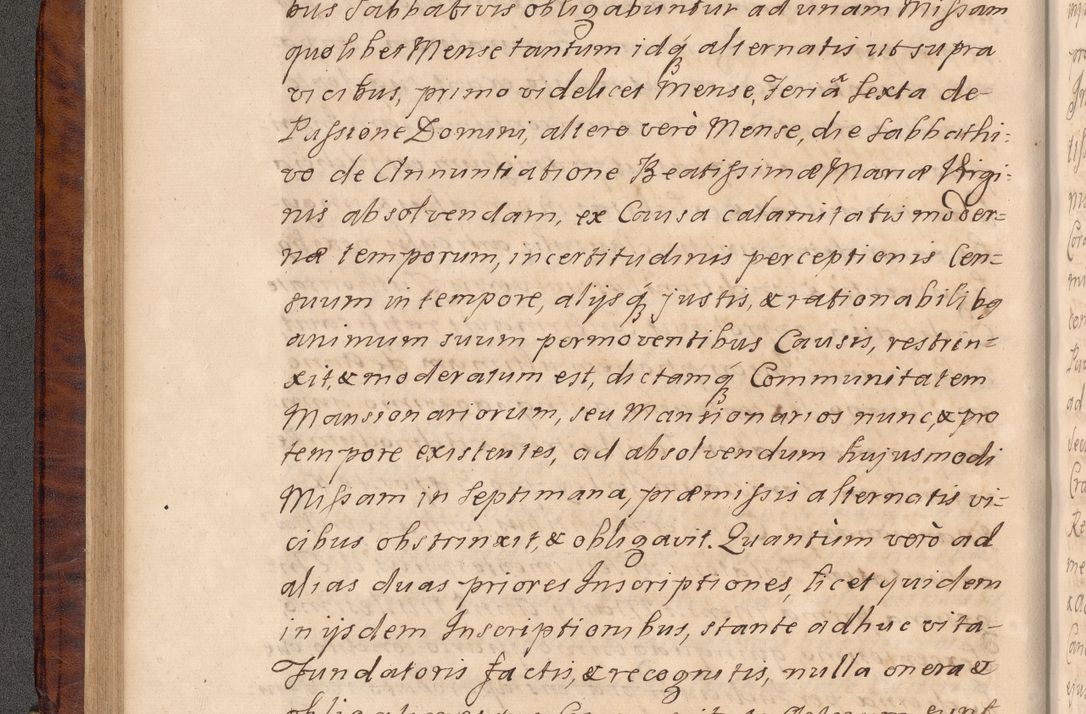 bus Sabbativis obligabuntur ad unam Missam
quolibet Mense tantum idq́ʒ alternatis ut supra
vicibus, primo videlicet Mense, Feriâ Sexta de
Passione Domini, altero verò Mense, die Sabbathi:
vo de Annuntiatione Beatissimæ Mariæ Virgi:
nis absolvendam, ex Causa calamitatis moder=
næ temporum, incertitudinis perceptionis Cen=
suum in tempore, alijsq́ʒ justis, & rationabilibq
animum suum permoventibus Causis, restrin=
xit, & moderatum est, dictamq́ʒ Communitatem
Mansionariorum, seu Mansionarios nunc, & pro
tempore existentes, ad absolvendum hujusmodi
Missam in Septimana, præmissis alternatis vi=
cibus obstrinxit, & obligavit. Quantùm verò ad
alias duas priores Inscriptiones, licet quidem
in ijsdem Inscriptionibus, stante adhuc vita
Fundatoris factis, & recognitis, nulla onera &